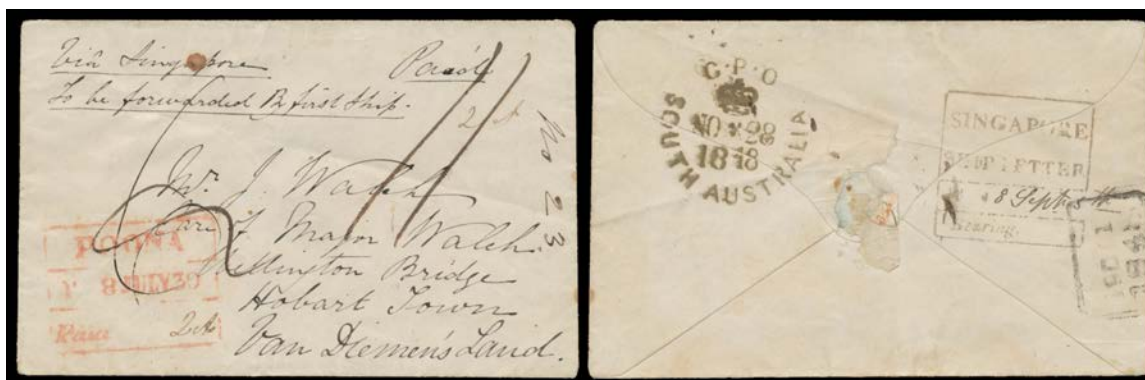 Via Singapore
Paid
To be forwarded P first Ship.
2 A
No 23
Mr. J. Walch
Care of Major Walch
Wellington Bridge
Hobart Town
Van Diemen's Land.
POONA
Paid 2 A
G·P·O
NO 28
1848
SOUTH AUSTRALIA
SINGAPORE
SHIP LETTER
8 Sept
Bearing.